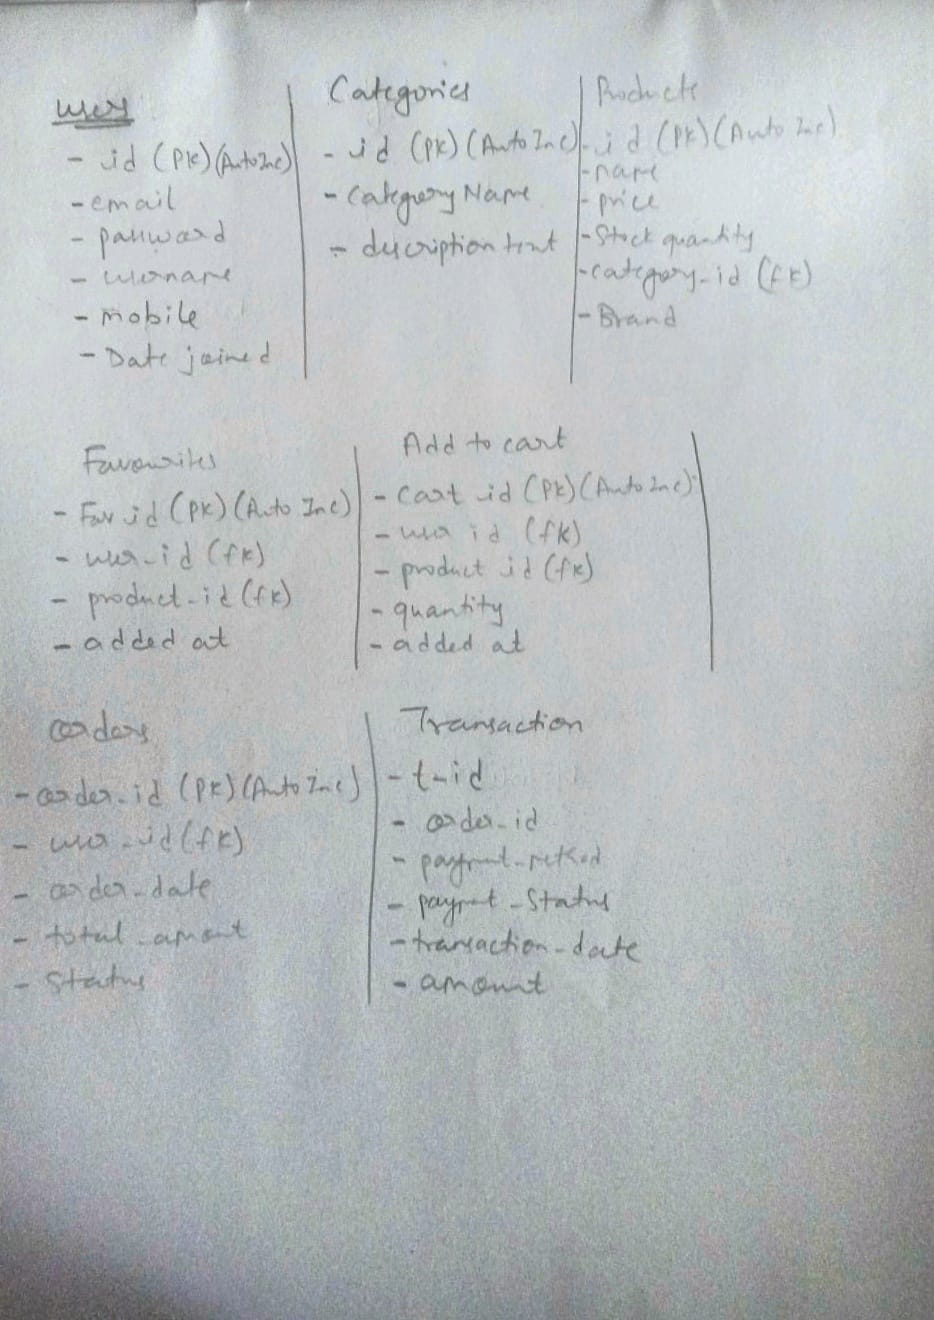 users
- id (PK) (Auto Inc)
- email
- password
- username
- mobile
- Date joined
Categories
- id (PK) (Auto Inc)
- Category Name
- description text
Products
- id (PK) (Auto Inc)
- name
- price
- Stock quantity
- category_id (fk)
- Brand
Favourites
- Fav id (PK) (Auto Inc)
- user_id (fk)
- product_id (fk)
- added at
Add to cart
- Cart id (PK) (Auto Inc)
- user id (fk)
- product id (fk)
- quantity
- added at
orders
- order_id (PK) (Auto Inc)
- user_id (fk)
- order_date
- total_amount
- Status
Transaction
- t_id
- order_id
- payment_method
- payment_Status
- transaction_date
- amount